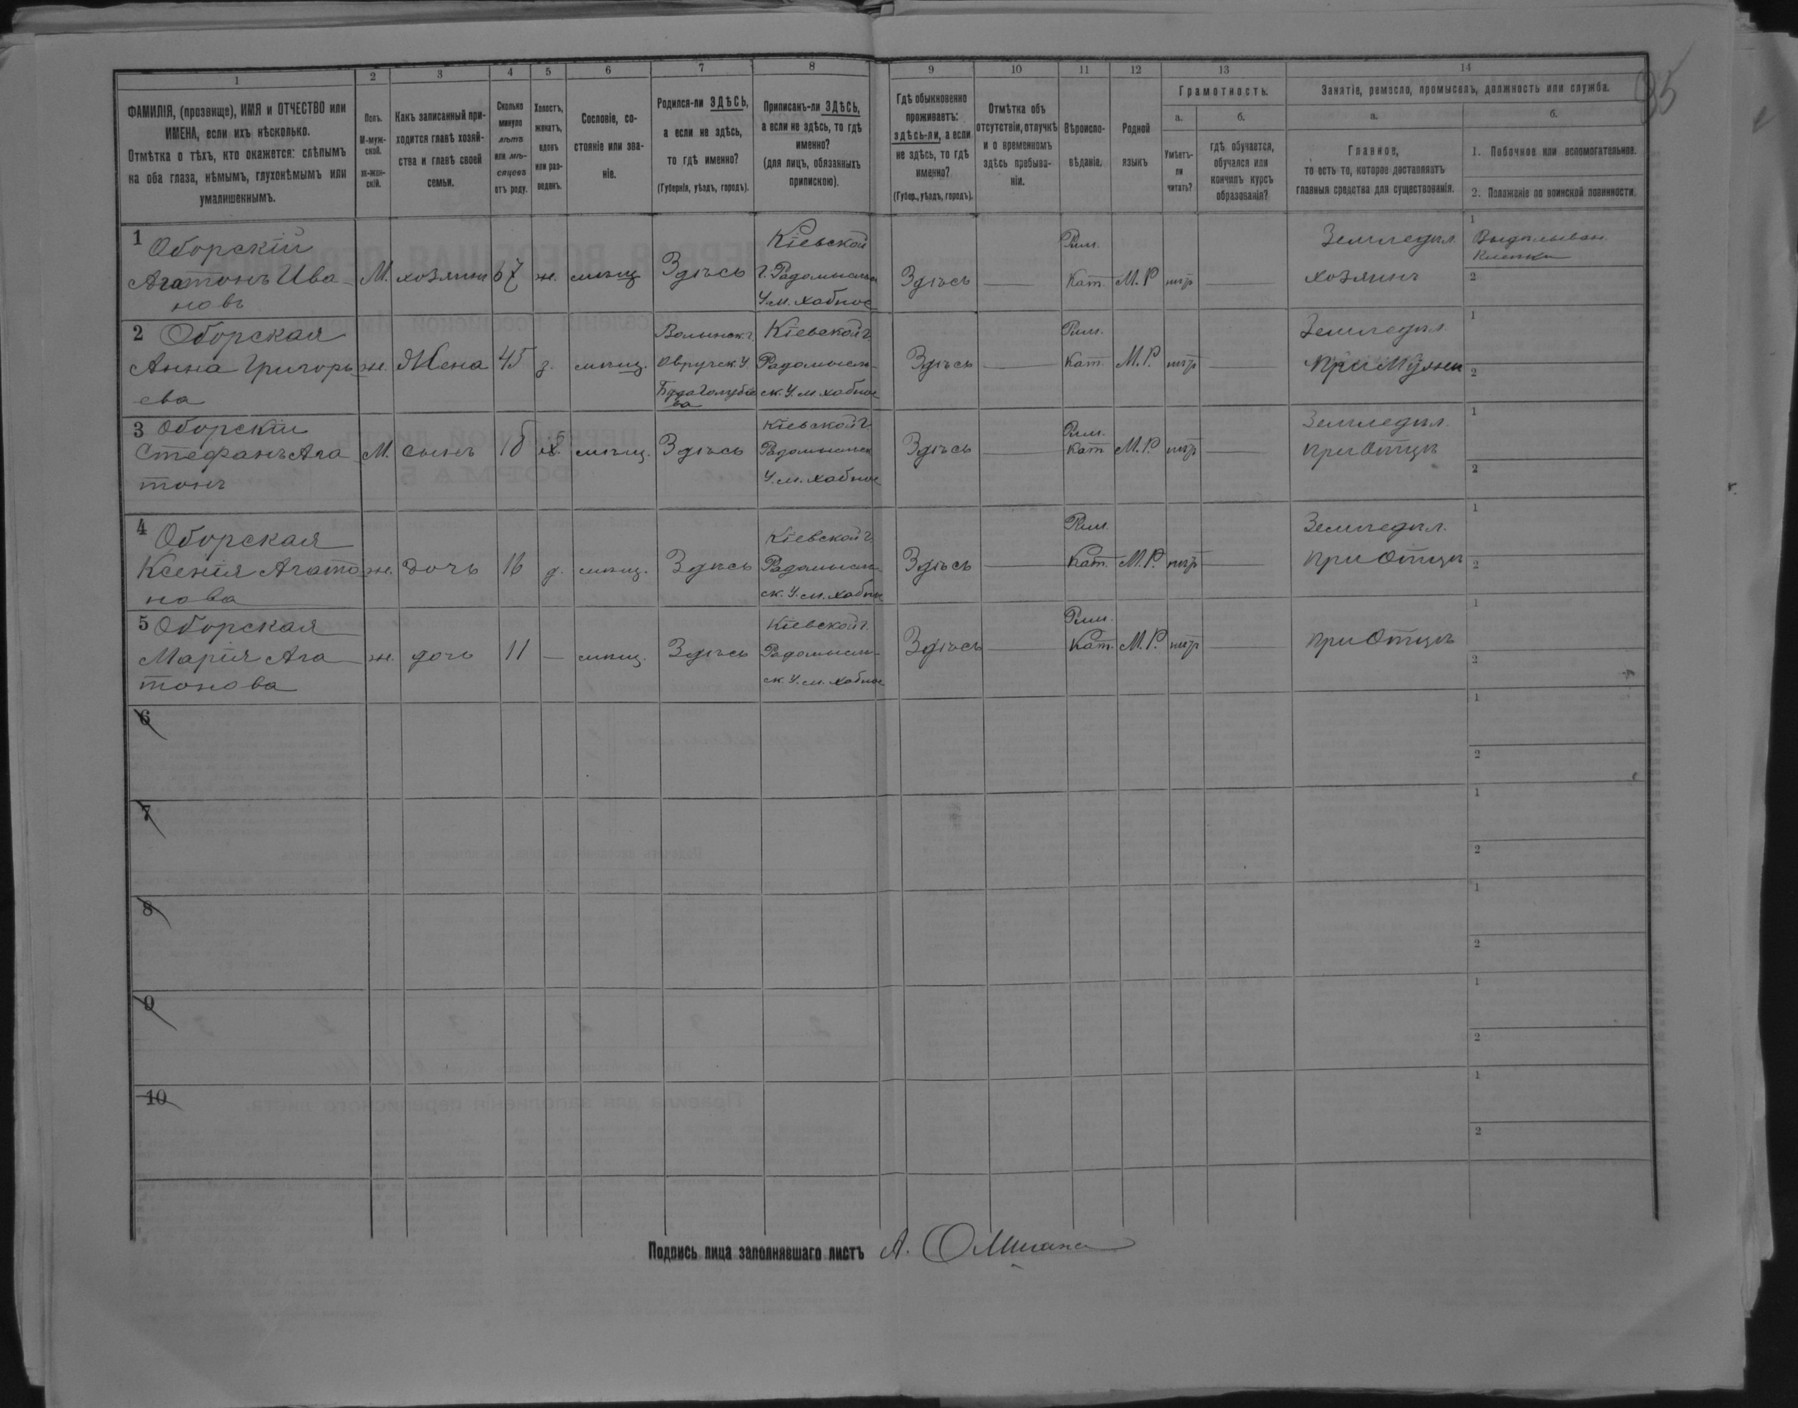 35
1 2 3 4 5 6 7 8 9 10 11 12 13 14
ФАМИЛІЯ, (прозвище), ИМЯ и ОТЧЕСТВО или
ИМЕНА, если ихъ нѣсколько.
Отмѣтка о тѣхъ, кто окажется: слѣпымъ
на оба глаза, нѣмымъ, глухонѣмымъ или
умалишеннымъ.
Полъ.
М-муж-
ской.
Ж-жен-
скій.
Какъ записанный при-
ходится главѣ хозяй-
ства и главѣ своей
семьи.
Сколько
минуло
лѣтъ
или мѣ-
сяцевъ
отъ роду.
Холостъ,
женатъ,
вдовъ
или раз-
веденъ.
Сословіе, со-
стояніе или зва-
ніе.
Родился-ли ЗДѢСЬ,
а если не здѣсь,
то гдѣ именно?
(Губернія, уѣздъ, городъ).
Приписанъ-ли ЗДѢСЬ,
а если не здѣсь, то гдѣ
именно?
(для лицъ, обязанныхъ
припискою).
Гдѣ обыкновенно
проживаетъ:
здѣсь-ли, а если
не здѣсь, то гдѣ
именно?
(Губер., уѣздъ, городъ).
Отмѣтка объ
отсутствіи, отлучкѣ
и о временномъ
здѣсь пребыва-
ніи.
Вѣроиспо-
вѣданіе.
Родной
языкъ
Грамотность.
а.
Умѣетъ-
ли
читать?
б.
гдѣ обучается,
обучался или
кончилъ курсъ
образованія?
Занятіе, ремесло, промыселъ, должность или служба.
а.
Главное,
то есть то, которое доставляетъ
главныя средства для существованія.
б.
1. Побочное или вспомогательное.
2. Положеніе по воинской повинности.
1 Оборскій
Агатонъ Ива
новъ
М. хозяинъ 67 ж. мѣщ Здѣсь
Кіевской
Г. Радомысльск
У. м. Хабное
Здѣсь
Рим.
Кат. М.Р нѣтъ
Земледѣл.
хозяинъ
1
2
2 Оборская
Анна Григорь
ева
ж. Жена 45 з. мѣщ.
Волынск. г.
Овручск У
Кіевской г.
Радомысль
ск. У. м Хабное
Здѣсь
Рим.
Кат. М.Р. нѣтъ
Земледѣл.
при Мужѣ
1
2
3 Оборскій
Стефанъ Ага
тонъ
М. сынъ 18 х мѣщ. Здѣсь
Кіевской г
Радомысльск
У. м. Хабное
Здѣсь
Рим.
Кат М.Р. нѣтъ
Земледѣл.
при Отцѣ
1
2
4 Оборская
Ксенія Агато
нова
ж. дочь 16 д. мѣщ. Здѣсь
Кіевской г
Радомысль
ск. У. м. Хабное
Здѣсь
Рим.
Кат. М.Р. нѣтъ
Земледѣл.
при Отцѣ
1
2
5 Оборская
Марія Ага
тонова
ж. дочь 11 — мѣщ. Здѣсь
Кіевской г
Радомысль
ск. У. м. Хабное
Здѣсь
Рим.
Кат. М.Р. нѣтъ
при Отцѣ
1
2
6
1
2
7
1
2
8
1
2
9
1
2
10
1
2
Подпись лица заполнявшаго листъ А.